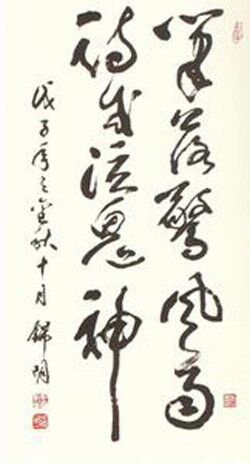 筆落驚風雨
詩成泣鬼神
戊子年之金秋十月 錦明